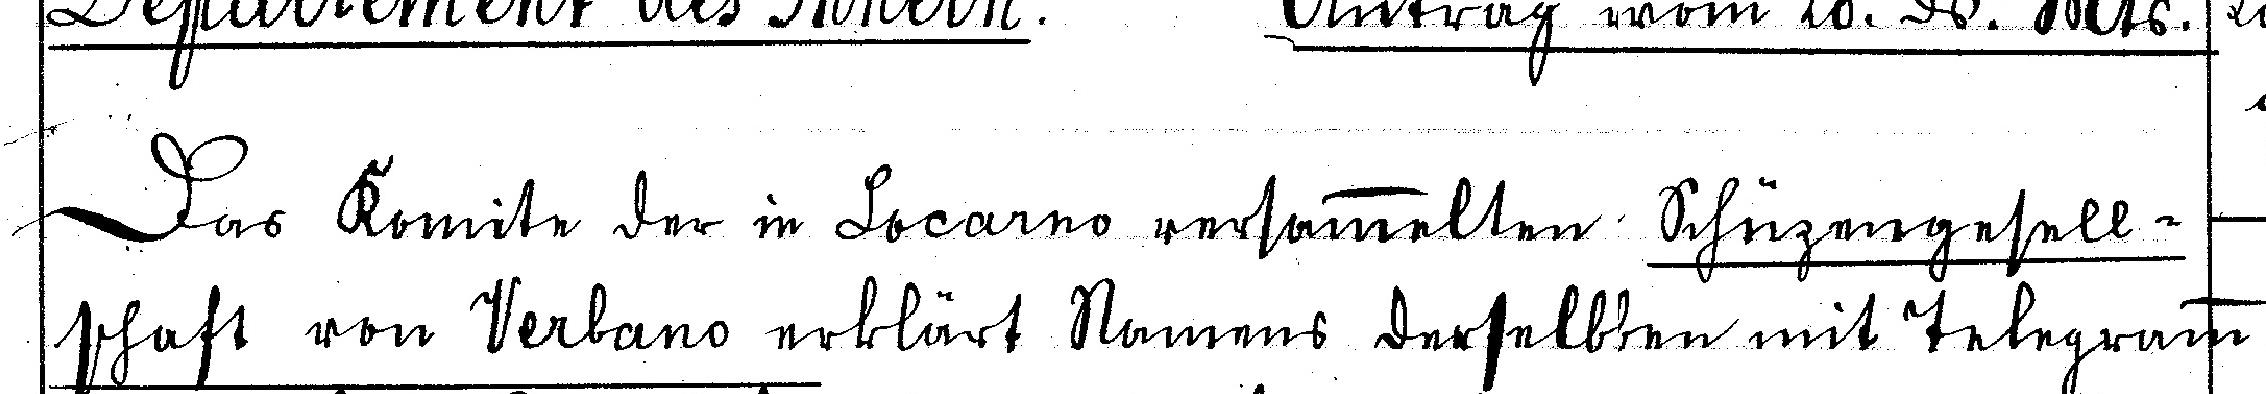 Departement des Innern. Antrag vom 20. ds. Mts.
Das Komite der in Locarno versam̅elten Schüzengesell-
schaft von Verbano erklärt Namens derselben mit Telegram̅